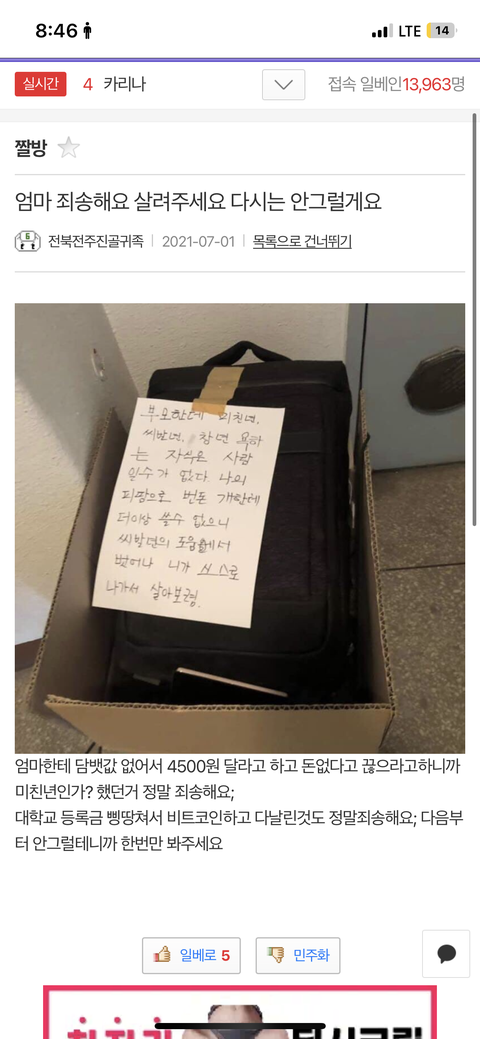 8:46
LTE 14
실시간 4 카리나 접속 일베인13,963명
짤방
엄마 죄송해요 살려주세요 다시는 안그럴게요
6 전북전주진골귀족 2021-07-01 목록으로 건너뛰기
부모한테 미친년,
씨발년, 참년 욕하
는 자식은 사람
일수가 없다. 나의
피땀으로 번돈 개한테
더이상 쓸수 없으니
씨발년의 도움에서
벗어나 니가 스스로
나가서 살아보렴.
엄마한테 담뱃값 없어서 4500원 달라고 하고 돈없다고 끊으라고하니까
미친년인가? 했던거 정말 죄송해요;
대학교 등록금 삥땅쳐서 비트코인하고 다날린것도 정말죄송해요; 다음부
터 안그럴테니까 한번만 봐주세요
일베로 5 민주화